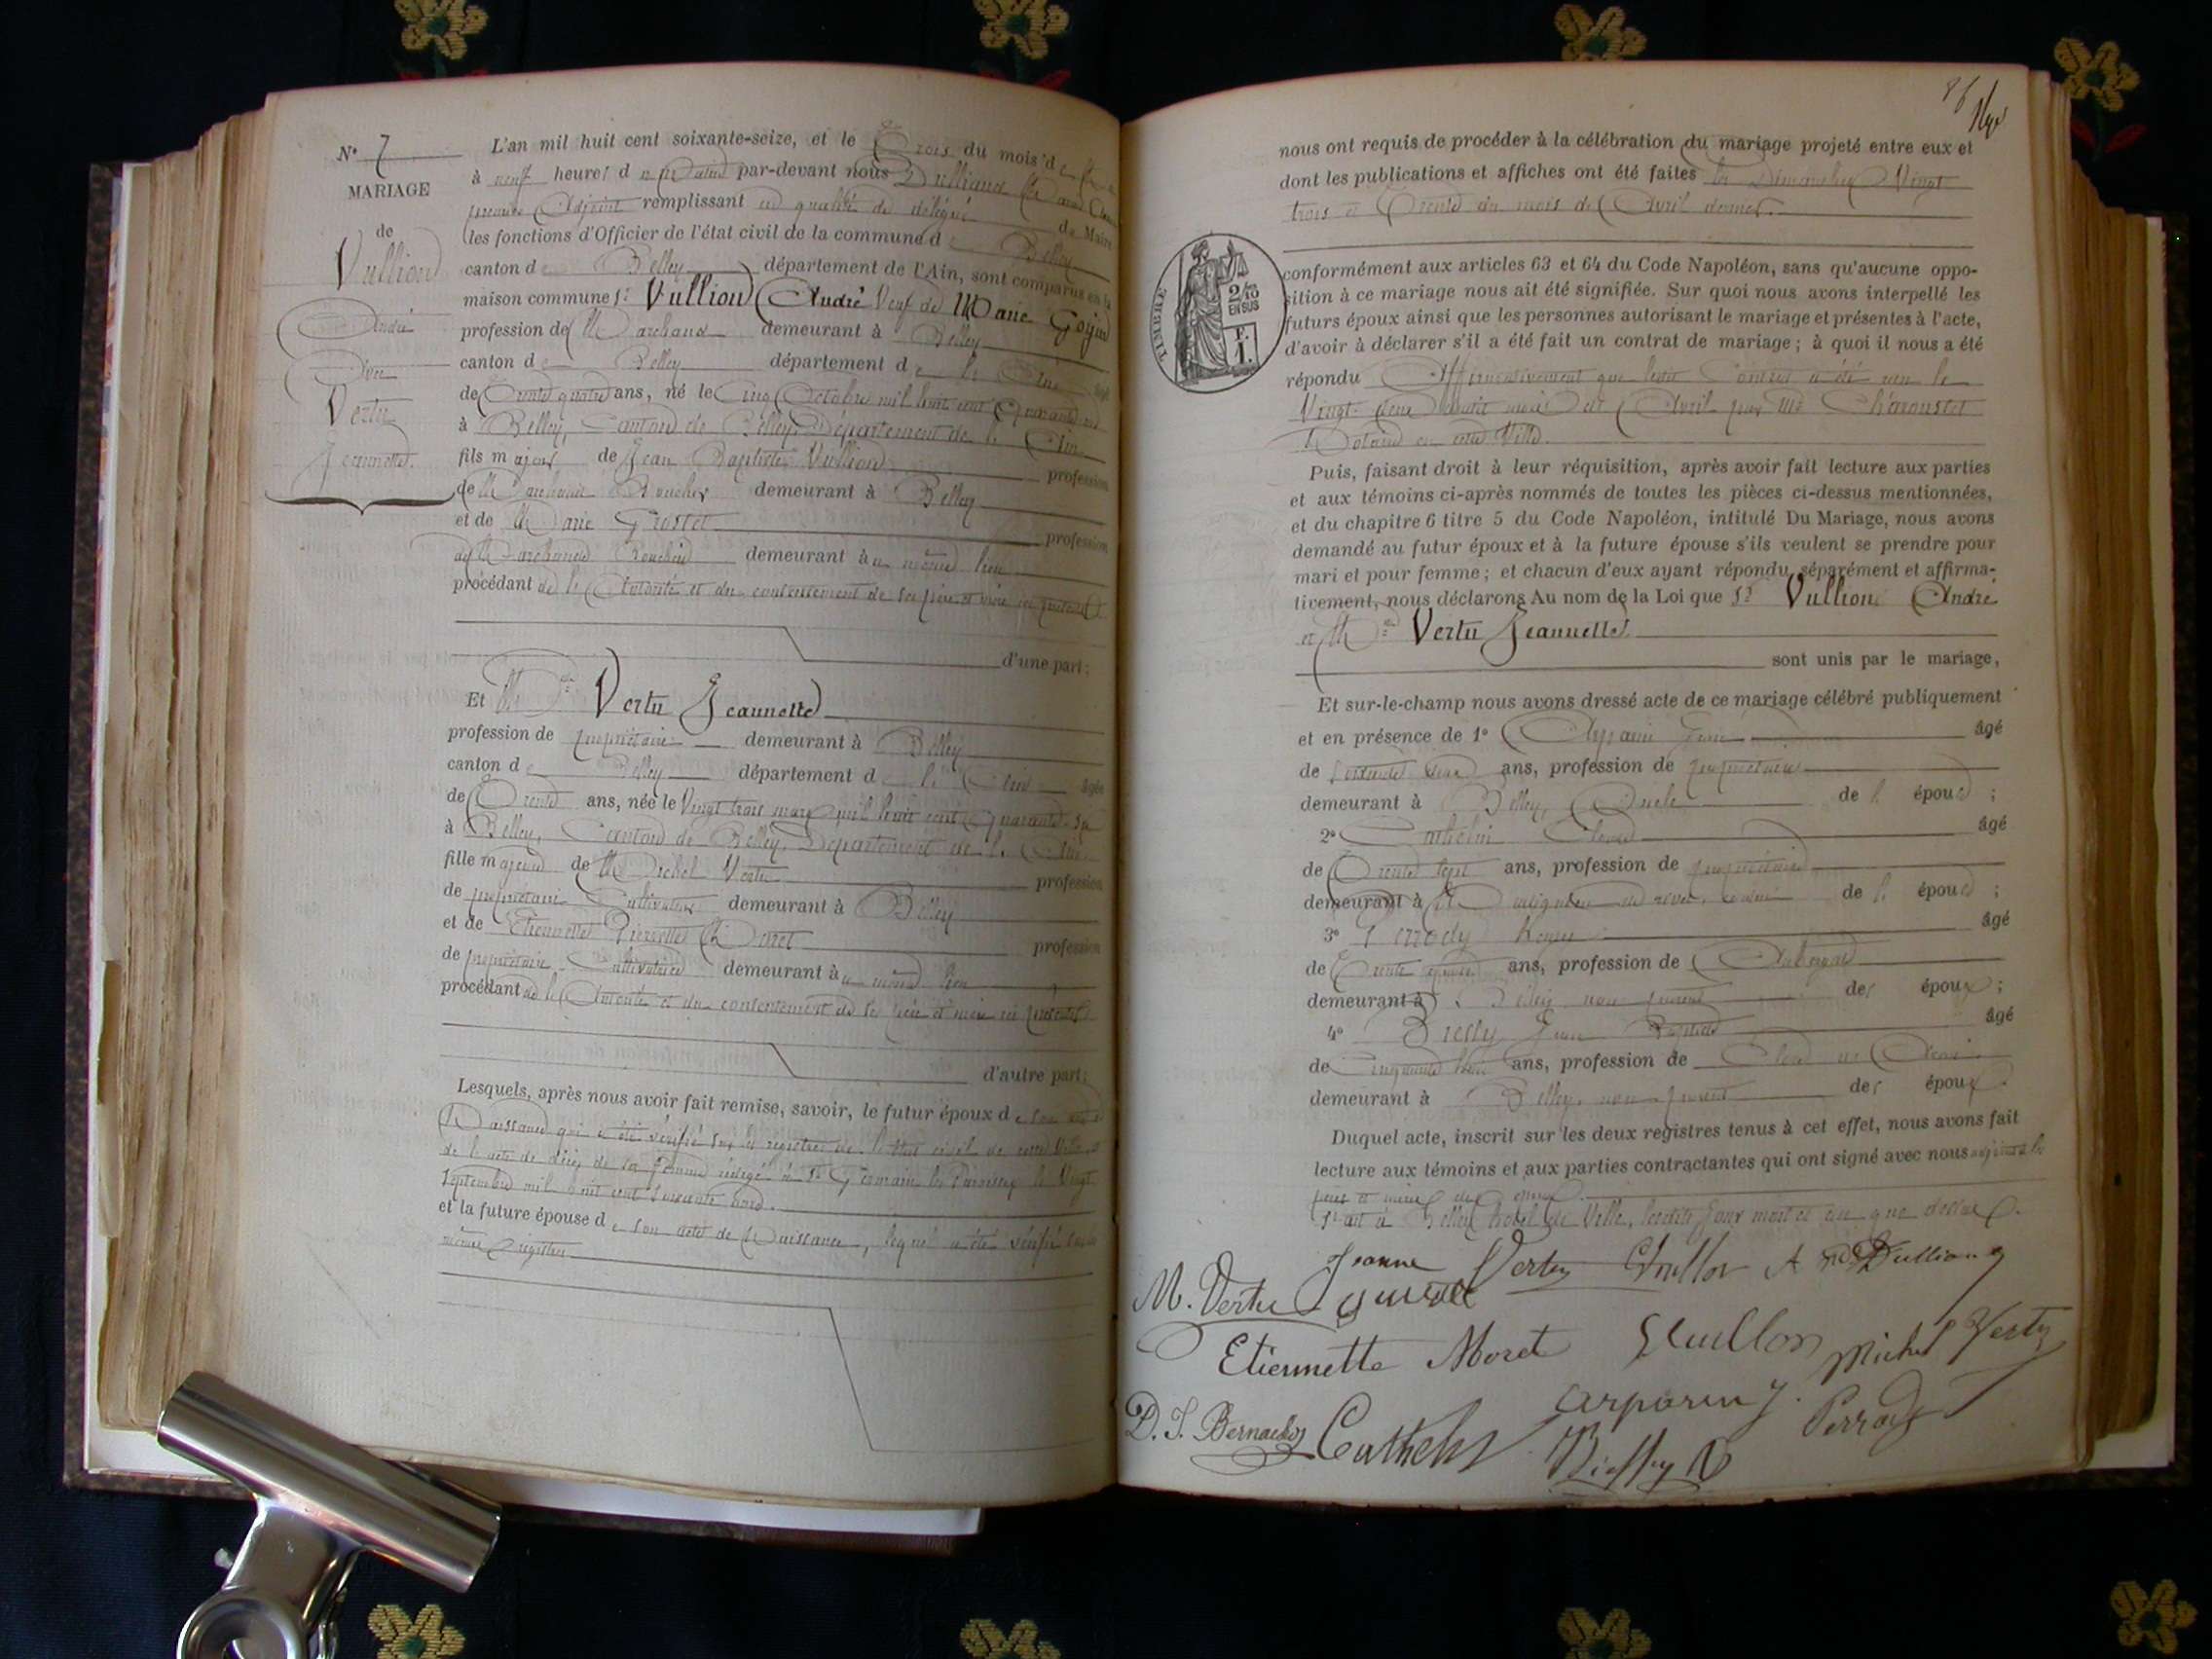 N° 7
MARIAGE
de
Vullion
André
Avec
Vertu
Jeannette
L'an mil huit cent soixante-seize, et le Trois du mois d
à neuf heures d u matin par-devant nous
premier Adjoint remplissant en qualité de délégué de Maire
les fonctions d'Officier de l'état civil de la commune d e Belley
canton d e Belley département de l'Ain, sont comparus en la
maison commune Sr Vullion André Veuf de Marie Goijon
profession de Marchand demeurant à Belley
canton d e Belley département d e l'Ain âgé
de Trente quatre ans, né le Cinq Octobre mil huit cent Quarante un
à Belley, Canton de Belley, Département de l'Ain
fils majeur de Jean Baptiste Vullion profession
de Marchand Boucher demeurant à Belley
et de Marie Grostet profession
de Marchande Bouchère demeurant à u même lieu
procédant de l'Autorité et du consentement de ses père et mère ici présents
d'une part;
Et Mlle Vertu Jeannette
profession de propriétaire demeurant à Belley
canton d e Belley département d e l'Ain âgée
de Trente ans, née le Vingt trois mars mil huit cent Quarante six
à Belley, Canton de Belley, Département de l'Ain
fille majeure de Michel Vertu profession
de propriétaire Cultivateur demeurant à Belley
et de Etiennette Pierrette Moret profession
de propriétaire Cultivatrice demeurant à u même lieu
procédant de l'Autorité et du consentement de ses père et mère ici présents
d'autre part;
Lesquels, après nous avoir fait remise, savoir, le futur époux d e son acte
Naissance qui a été vérifié sur les registres de l'Etat civil de cette Ville, et
de l'acte de décès de sa femme rédigé à St Germain les Paroisses le Vingt
Septembre mil huit cent soixante
et la future épouse d e son acte de Naissance, lequel a été vérifié sur les
mêmes registres
86
nous ont requis de procéder à la célébration du mariage projeté entre eux et
dont les publications et affiches ont été faites les Dimanches Vingt
trois et Trente du mois de Avril dernier.
TIMBRE
2/10
EN SUS
conformément aux articles 63 et 64 du Code Napoléon, sans qu'aucune oppo-
sition à ce mariage nous ait été signifiée. Sur quoi nous avons interpellé les
futurs époux ainsi que les personnes autorisant le mariage et présentes à l'acte,
d'avoir à déclarer s'il a été fait un contrat de mariage; à quoi il nous a été
répondu Affirmativement que ledit Contrat a été reçu le
Vingt deux Avril par Me
Notaire en cette Ville.
Puis, faisant droit à leur réquisition, après avoir fait lecture aux parties
et aux témoins ci-après nommés de toutes les pièces ci-dessus mentionnées,
et du chapitre 6 titre 5 du Code Napoléon, intitulé Du Mariage, nous avons
demandé au futur époux et à la future épouse s'ils veulent se prendre pour
mari et pour femme; et chacun d'eux ayant répondu séparément et affirma-
tivement, nous déclarons Au nom de la Loi que Sr Vullion André
et Mlle Vertu Jeannette
sont unis par le mariage,
Et sur-le-champ nous avons dressé acte de ce mariage célébré publiquement
et en présence de 1° âgé
de soixante ans, profession de propriétaire
demeurant à Belley, Oncle de l' époux ;
2° Cathelin âgé
de Trente sept ans, profession de propriétaire
demeurant à cousin de l' époux ;
3° Perrody âgé
de Trente ans, profession de Aubergiste
demeurant à Belley non parent des époux ;
4° Jean Baptiste âgé
de Cinquante ans, profession de
demeurant à Belley, non parent des époux.
Duquel acte, inscrit sur les deux registres tenus à cet effet, nous avons fait
lecture aux témoins et aux parties contractantes qui ont signé avec nous ainsi que les
pères et mères des époux.
Fait à Belley hôtel de Ville, lesdits jour mois et an que dessus.
Jeanne Vertu Vullion
M. Vertu
Etiennette Moret Vullion Michel Vertu
D. J. Cathelin Perrody